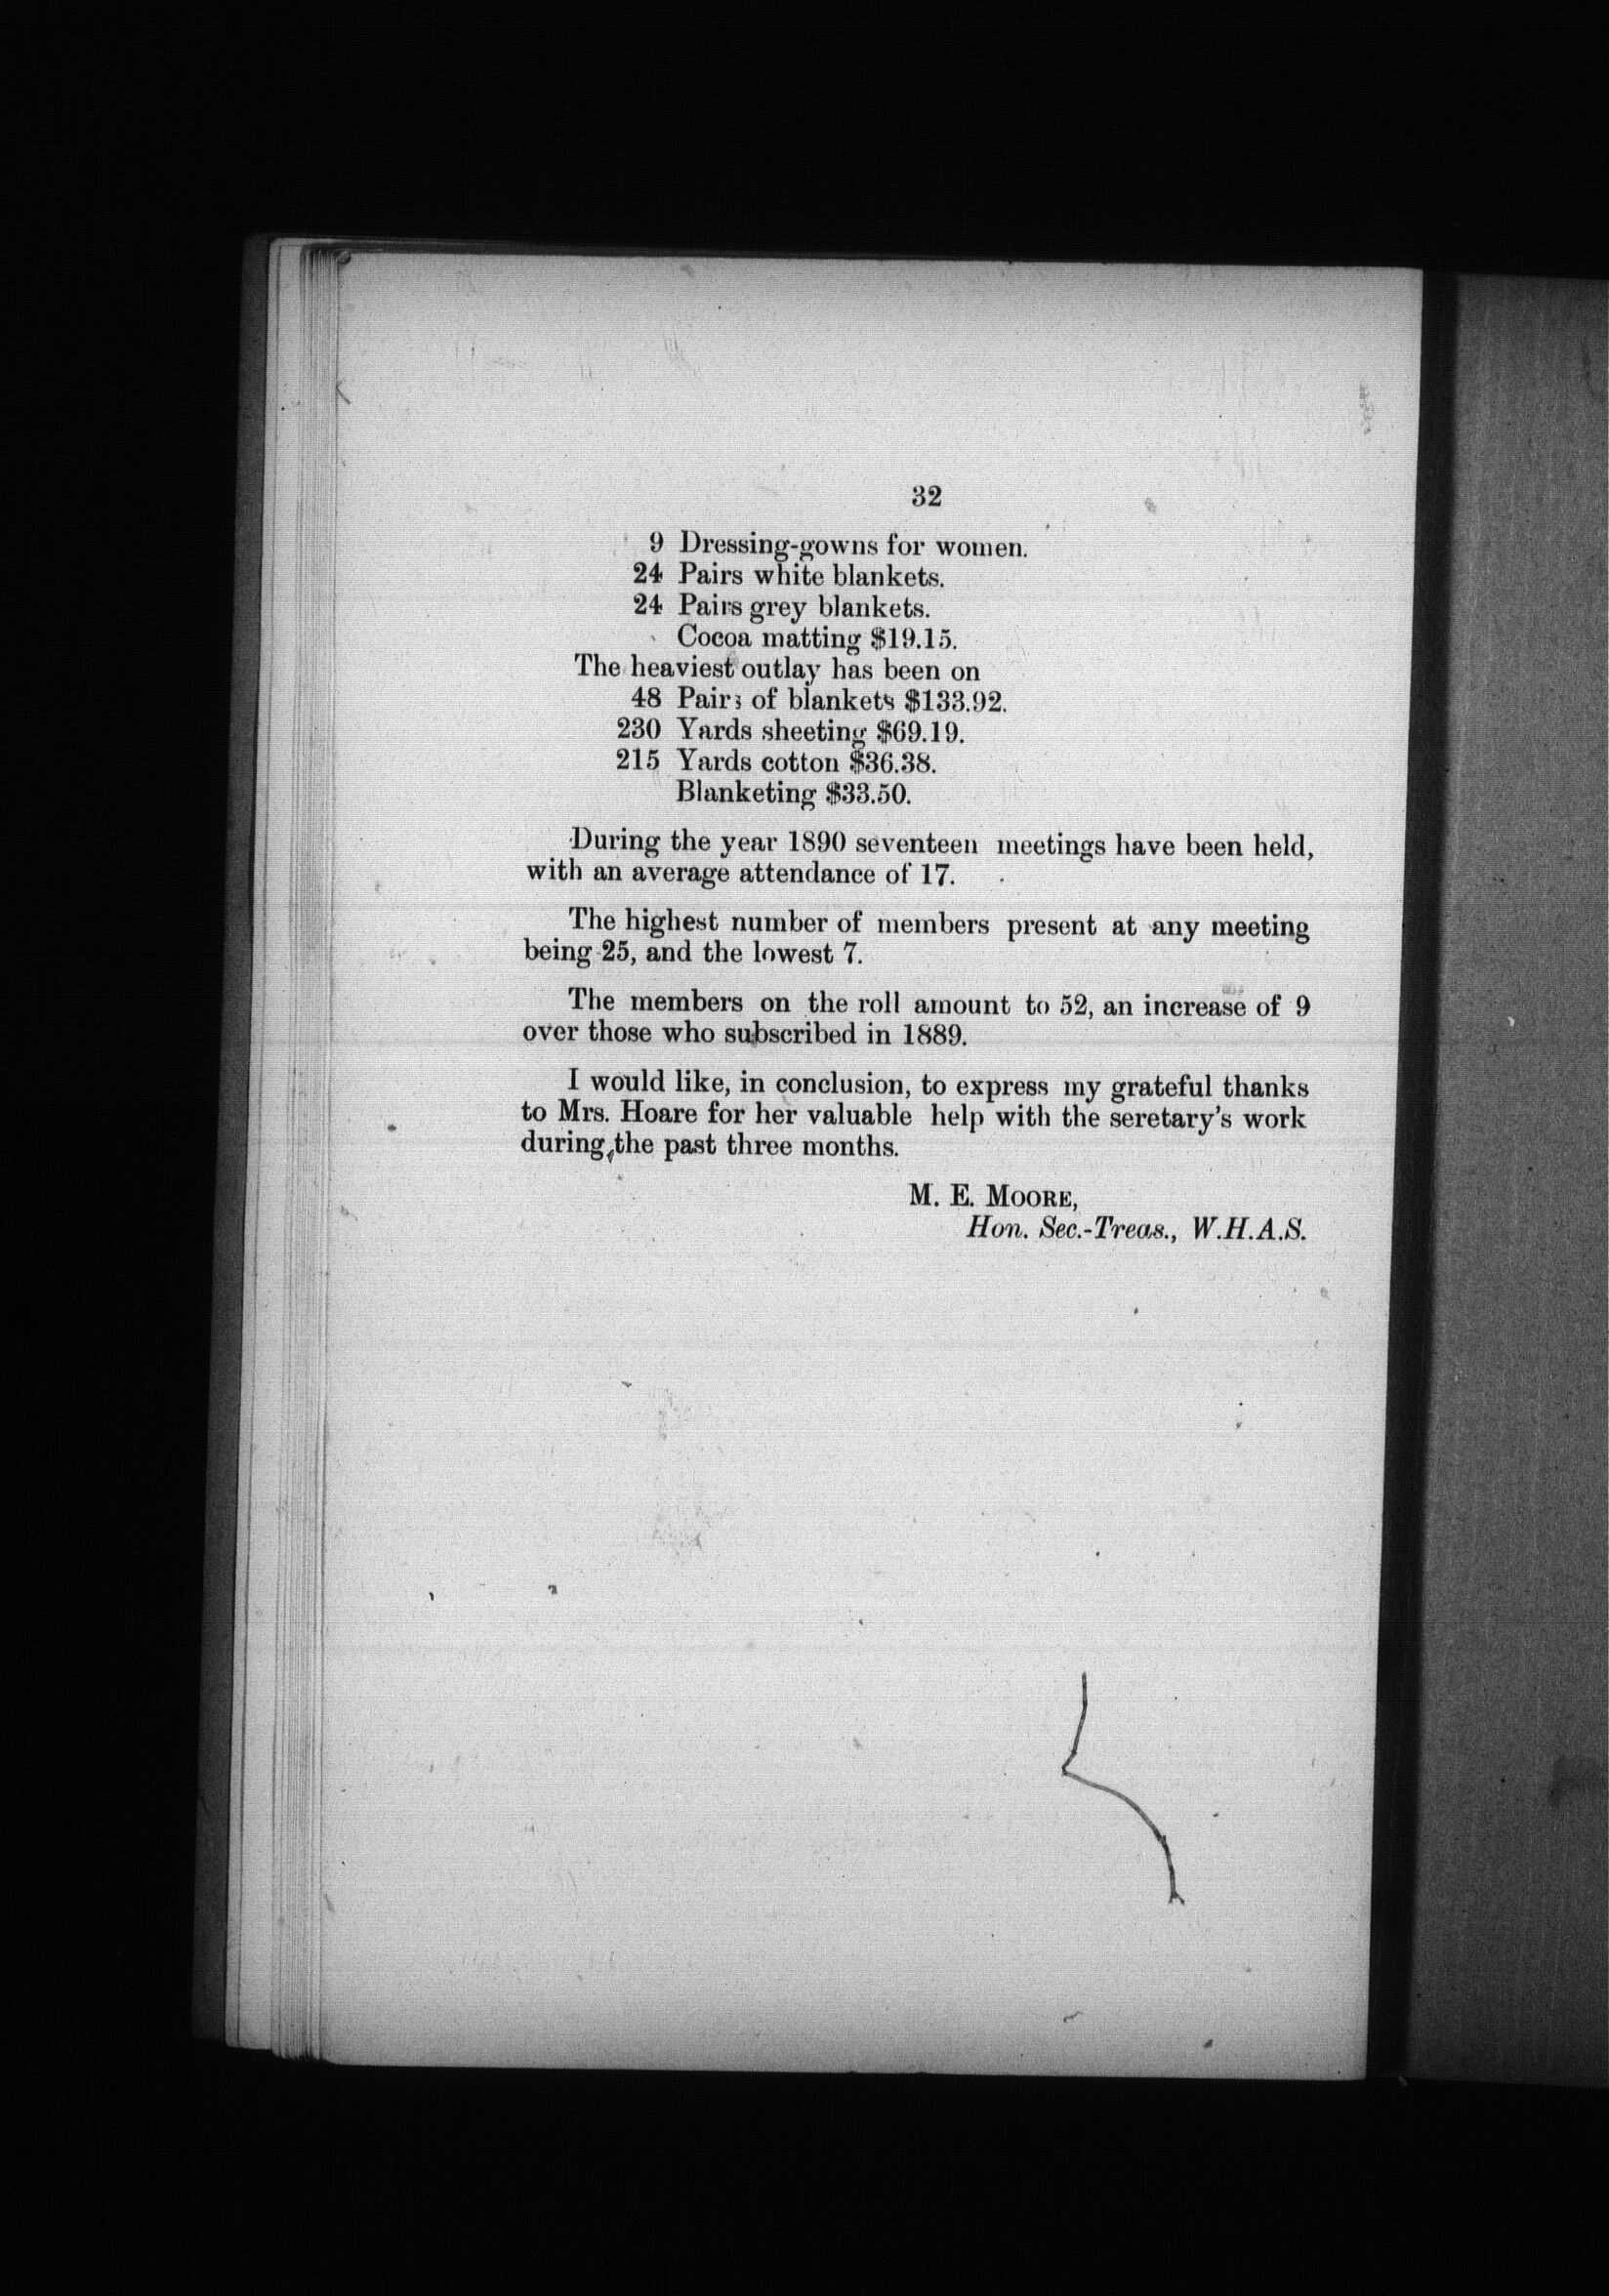 32
9 Dressing-gowns for women.
24 Pairs white blankets.
24 Pairs grey blankets.
Cocoa matting $19.15.
The heaviest outlay has been on
48 Pairs of blankets $133.92.
230 Yards sheeting $69.19.
215 Yards cotton $36.38.
Blanketing $33.50.
During the year 1890 seventeen meetings have been held,
with an average attendance of 17.
The highest number of members present at any meeting
being 25, and the lowest 7.
The members on the roll amount to 52, an increase of 9
over those who subscribed in 1889.
I would like, in conclusion, to express my grateful thanks
to Mrs. Hoare for her valuable help with the seretary's work
during the past three months.
M. E. MOORE,
Hon. Sec.-Treas., W.H.A.S.